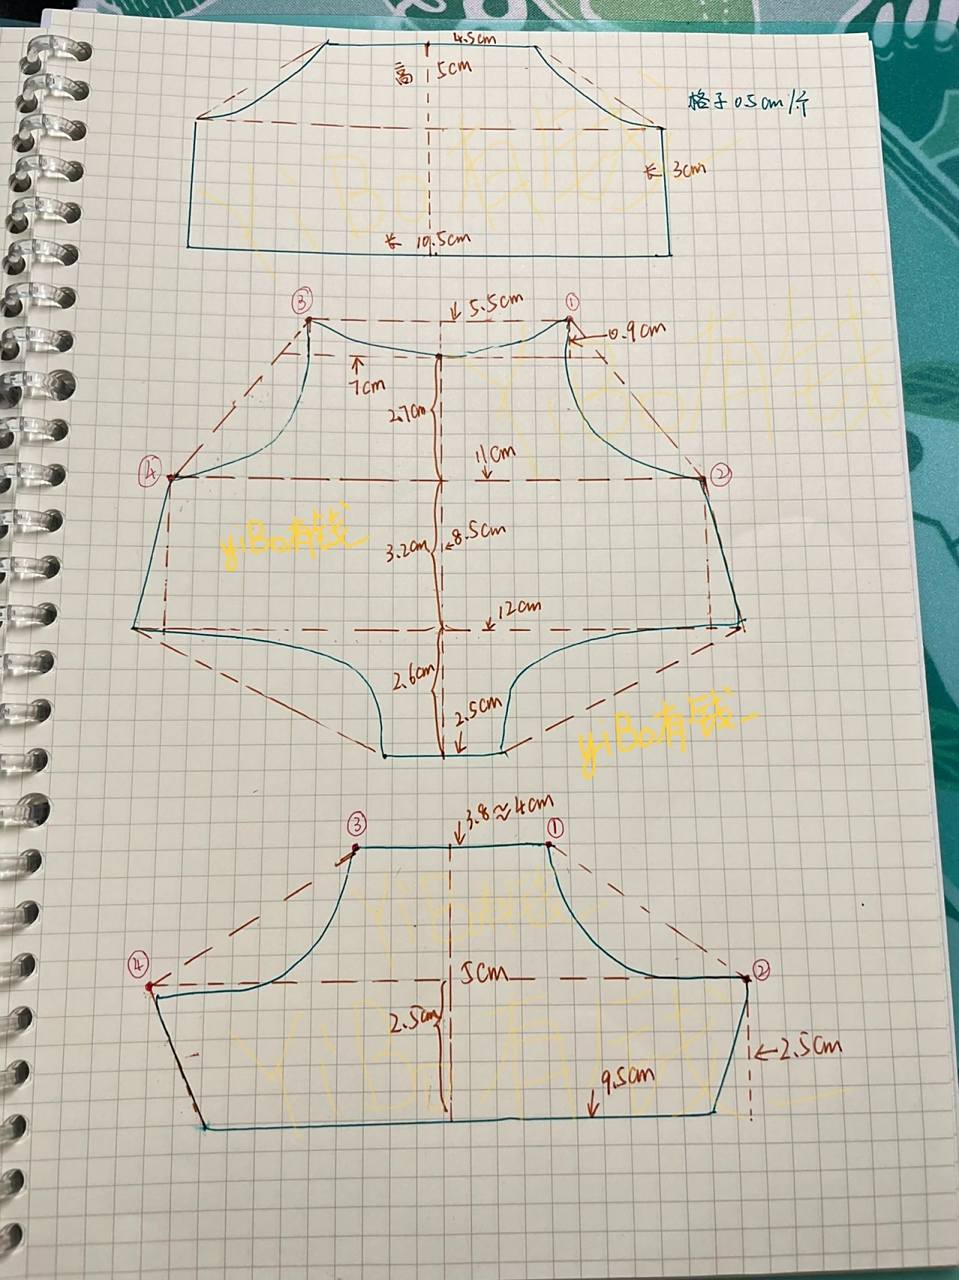 4.5cm
高 5cm
格子0.5cm/个
长 3cm
长 10.5cm
YiBo有钱
③
5.5cm
①
0.9cm
7cm
2.7cm
YiBo有钱
11cm
④
②
yiBo有钱
3.2cm
8.5cm
12cm
2.6cm
2.5cm
yiBo有钱
3.8≈4cm
③
①
YiBo有钱
④
5cm
②
2.5cm
YiBo有钱
2.5cm
9.5cm